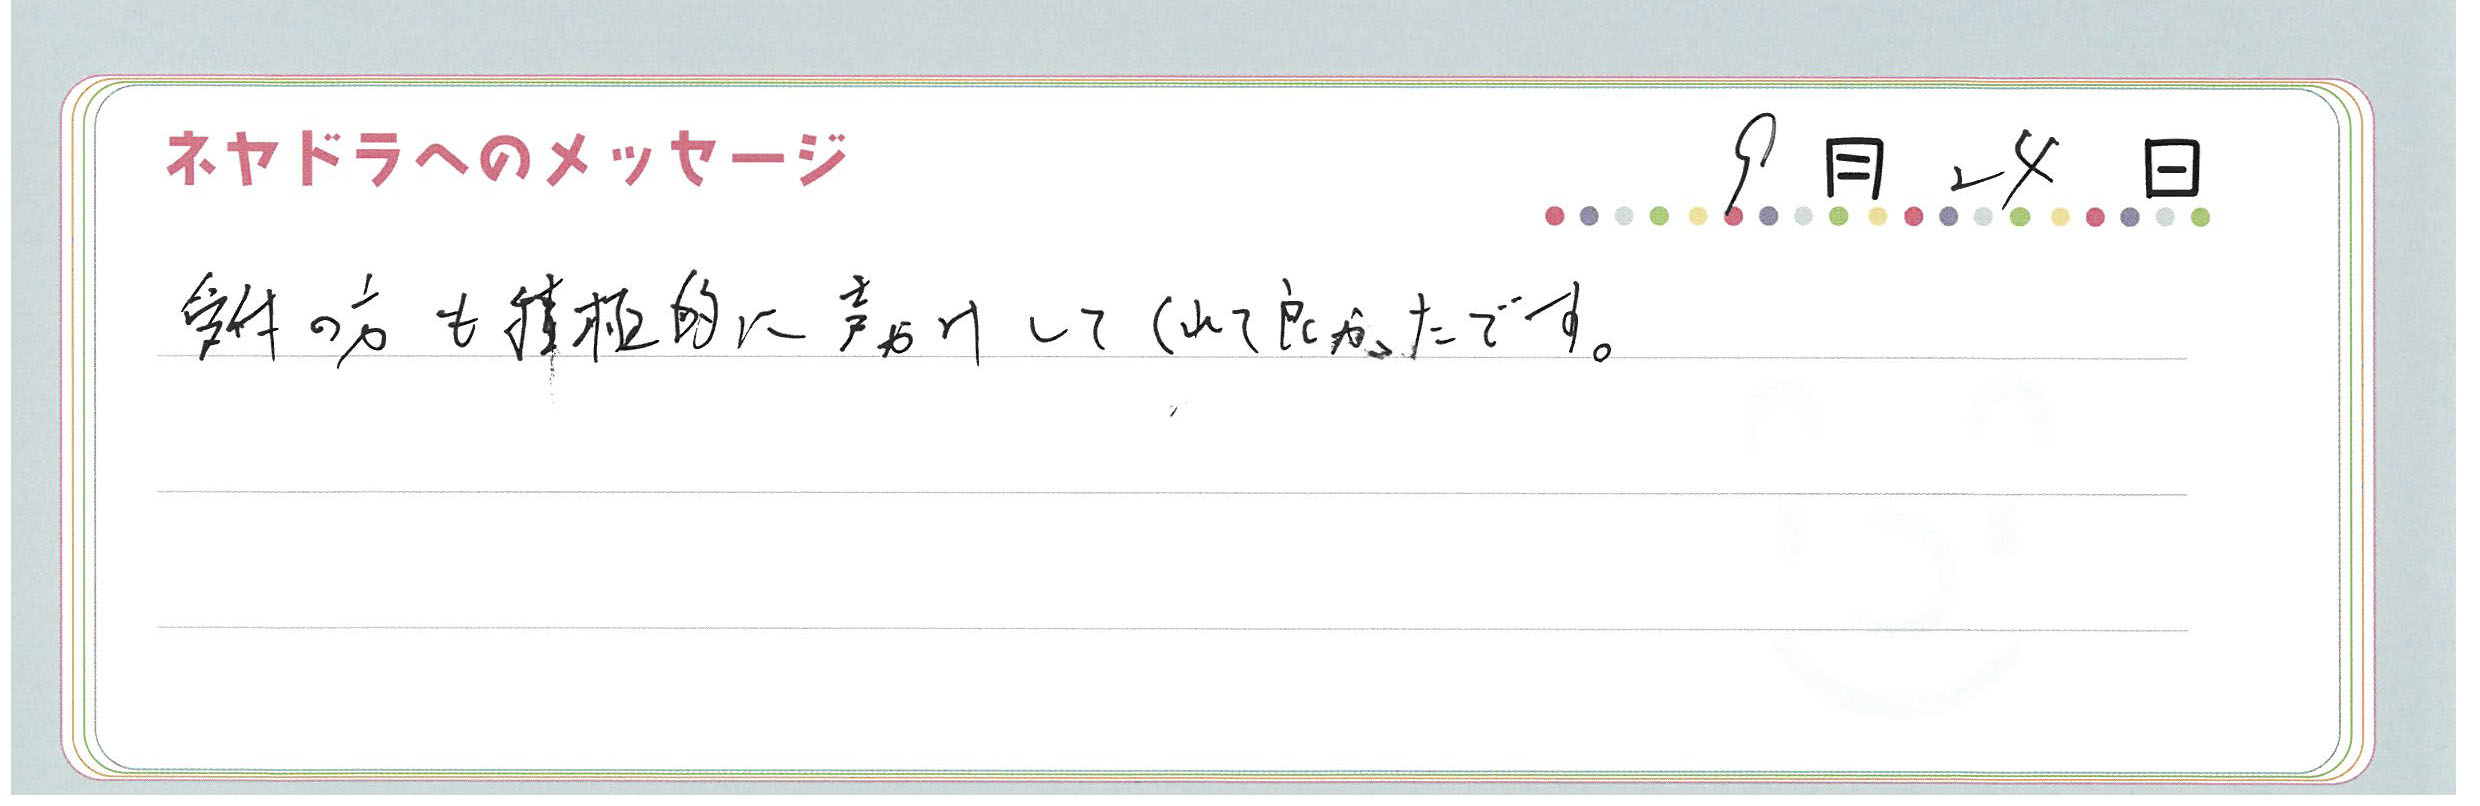 ネヤドラへのメッセージ
9月24日
受付の方も積極的に声かけしてくれて良かったです。